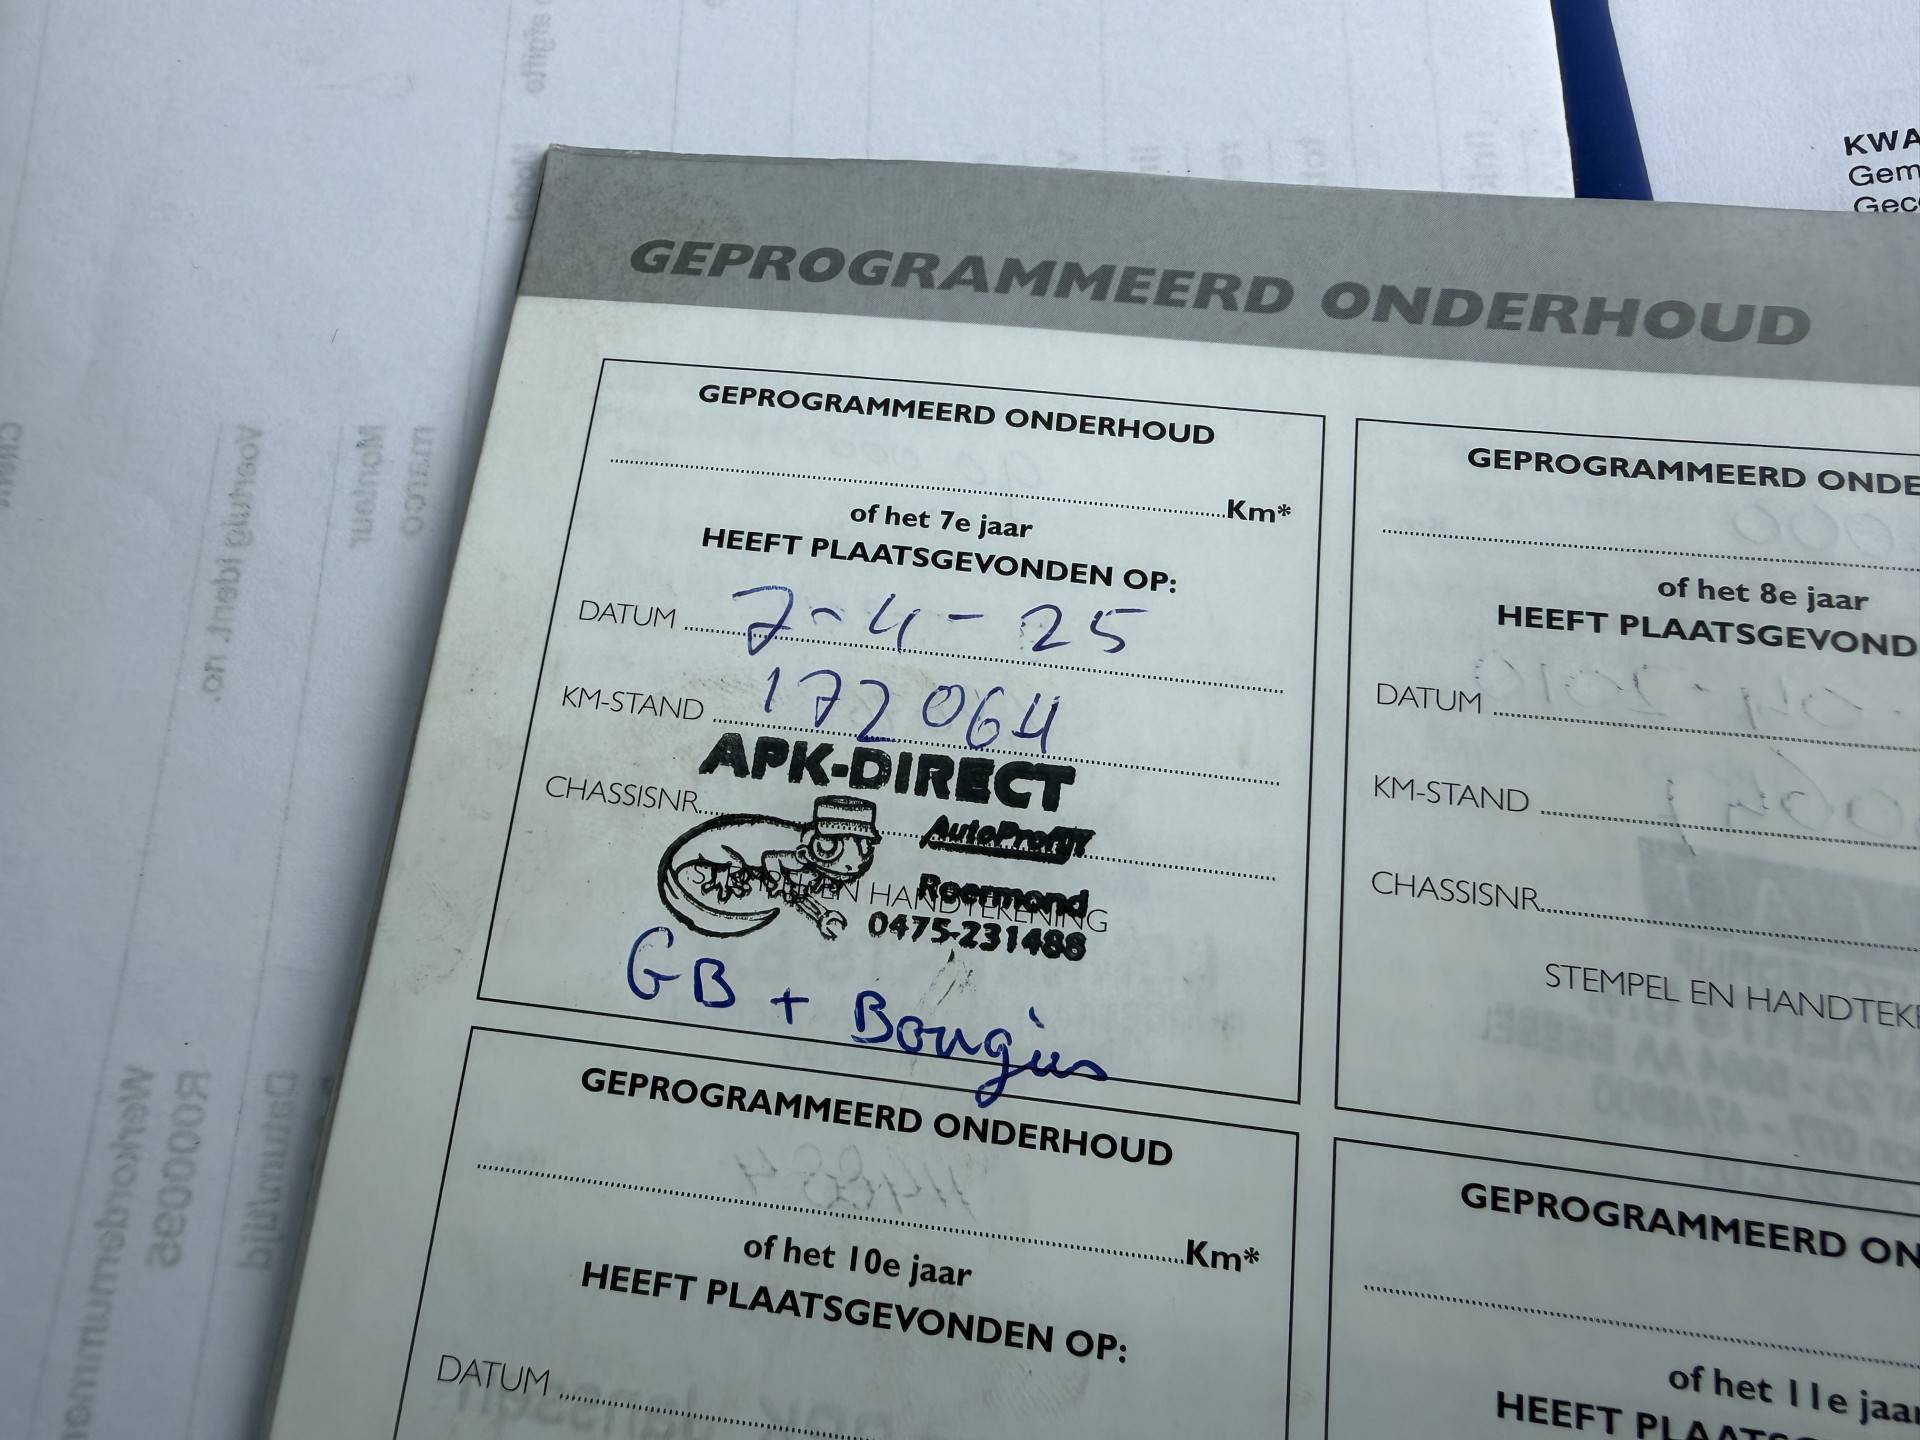 KWA
Gem
Gec
GEPROGRAMMEERD ONDERHOUD
GEPROGRAMMEERD ONDERHOUD
Km*
of het 7e jaar
HEEFT PLAATSGEVONDEN OP:
DATUM 7-4-25
KM-STAND 172064
APK-DIRECT
CHASSISNR.
AutoProfijt
STEMPEL EN HANDTEKENING
Roermond
0475-231488
GB + Bougies
GEPROGRAMMEERD ONDE
of het 8e jaar
HEEFT PLAATSGEVOND
DATUM
KM-STAND
CHASSISNR.
STEMPEL EN HANDTEKE
GEPROGRAMMEERD ONDERHOUD
Km*
of het 10e jaar
HEEFT PLAATSGEVONDEN OP:
DATUM
GEPROGRAMMEERD ON
of het 11e jaar
HEEFT PLAATSG
marco
Monteur
Voertuig ident. no.
Datum/tijd
R000095
Werkordernummer